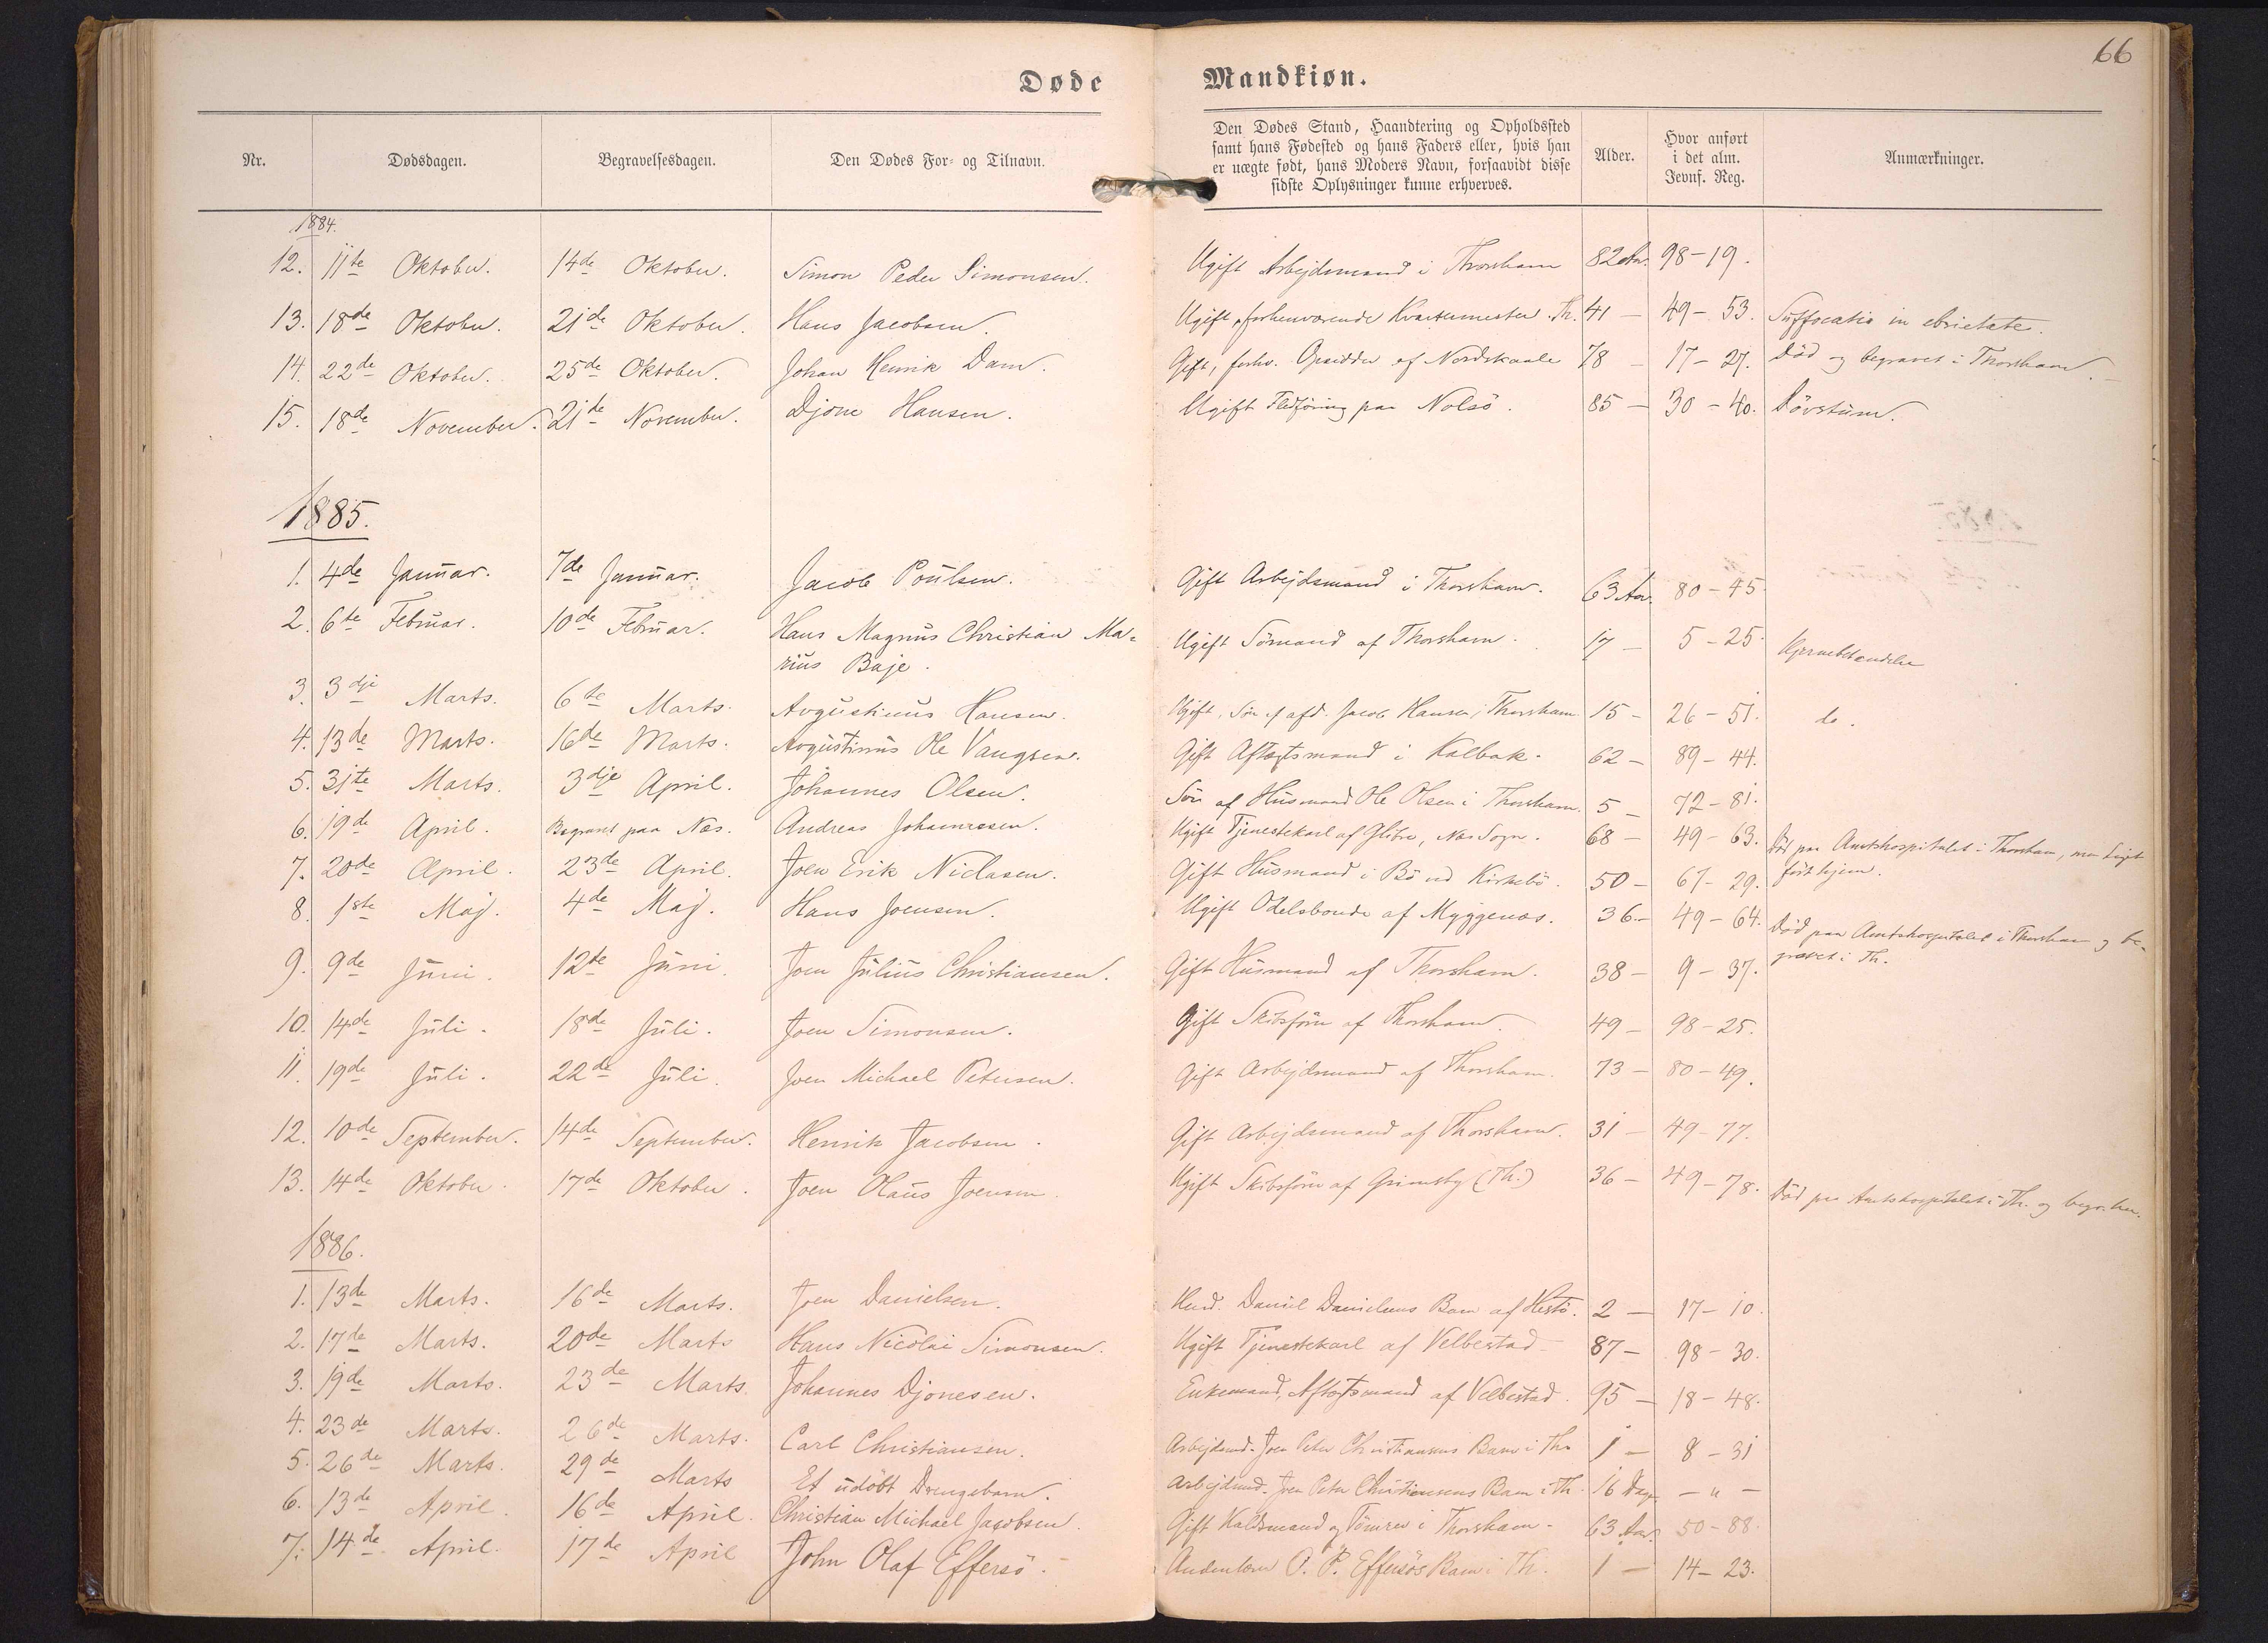 66
Døde Mandkiøn.
Nr. Dødsdagen. Begravelsesdagen. Den Dødes For- og Tilnavn. Den Dødes Stand, Haandtering og Opholdssted samt hans Fødested og hans Faders eller, hvis han er uægte født, hans Moders Navn, forsaavidt disse sidste Oplysninger kunne erhverves. Alder. Hvor anført i det alm. Jevnf. Reg. Anmærkninger.
1884.
12. 11te Oktober. 14de Oktober. Simon Peder Simonsen. Ugift Arbejdsmand i Thorshavn 82 Aar. 98-19.
13. 18de Oktober. 21de Oktober. Hans Jacobsen. Ugift, forhenværende Kvartermester Th. 41 - 49-53. Suffocatio in ebrietate.
14. 22de Oktober. 25de Oktober. Johan Henrik Dam. Gift, forhv. Opsidder af Nordskaale 78 - 17-27. Död og begravet i Thorshavn.
15. 18de November. 21de November. Djone Hansen. Ugift Fledföring paa Nolsö. 85 - 30-40. Dövstum.
1885.
1. 4de Januar. 7de Januar. Jacob Poulsen. Gift Arbejdsmand i Thorshavn. 63 Aar. 80-45.
2. 6te Februar. 10de Februar. Hans Magnus Christian Ma-
rius Baje. Ugift Sömand af Thorshavn. 17 - 5-25. Hjernebetændelse
3. 3dje Marts. 6te Marts. Augustinus Hansen. Ugift, Sön af afd. Jacob Hansen, Thorshavn. 15 - 26-51. do.
4. 13de Marts. 16de Marts. Augustinus Ole Vangsen. Gift Aftægtsmand i Kalbak. 62 - 89-44.
5. 31te Marts. 3dje April. Johannes Olsen. Sön af Husmand Ole Olsen i Thorshavn. 5 - 72-81.
6. 19de April. Begravet paa Næs. Andreas Johannesen. Ugift Tjenestekarl af Glibre, Næs Sogn. 68 - 49-63. Död paa Amtshospitalet i Thorshavn, men Liget
fört hjem.
7. 20de April. 23de April. Joen Erik Niclasen. Gift Husmand i Bö ved Kirkebö. 50 - 67-29.
8. 1ste Maj. 4de Maj. Hans Joensen. Ugift Odelsbonde af Myggenæs. 36 - 49-64. Död paa Amtshospitalet i Thorshavn og be-
gravet i Th.
9. 9de Juni. 12te Juni. Joen Julius Christiansen. Gift Husmand af Thorshavn. 38 - 9-37.
10. 14de Juli. 18de Juli. Joen Simonsen. Gift Skibsförer af Thorshavn. 49 - 98-25.
11. 19de Juli. 22de Juli. Joen Michael Petersen. Gift Arbejdsmand af Thorshavn. 73 - 80-49.
12. 10de September. 14de September. Henrik Jacobsen. Gift Arbejdsmand af Thorshavn. 31 - 49-77.
13. 14de Oktober. 17de Oktober. Joen Olaus Joensen. Ugift Skibsförer af Grimsby (Th.) 36 - 49-78. Död paa Amtshospitalet i Th. og begr. her.
1886.
1. 13de Marts. 16de Marts. Joen Danielsen. Husd. Daniel Danielsens Barn af Hestö. 2 - 17-10.
2. 17de Marts. 20de Marts Hans Nicolai Simonsen. Ugift Tjenestekarl af Velbestad 87 - 98-30.
3. 19de Marts. 23de Marts. Johannes Djonesen. Enkemand, Aftægtsmand af Velbestad. 95 - 18-48.
4. 23de Marts. 26de Marts. Carl Christiansen. Arbejdsmd. Joen Peter Christiansens Barn i Th. 1 - 8-31
5. 26de Marts. 29de Marts Et udöbt Drengebarn. Arbejdsmd. Joen Peter Christiansens Barn i Th. 16 Dage. - " -
6. 13de April. 16de April. Christian Michael Jacobsen. Gift Kaldsmand og Tömrer i Thorshavn. 63 Aar. 50-88.
7. 14de April. 17de April John Olaf Effersö. Andenlærer O. P. Effersös Barn i Th. 1 - 14-23.